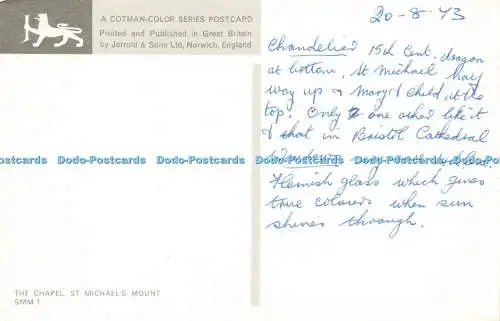 A COTMAN-COLOR SERIES POSTCARD
Printed and Published in Great Britain
by Jarrold & Sons Ltd, Norwich, England
20-8-73
Chandelier 15th Cent. dragon
at bottom, St Michael half
way up & Mary & child at the
top. Only one other like it
& that in Bristol Cathedral
Dodo-Postcards Dodo-Postcards Dodo-Postcards Dodo-Postcards Dodo-Postcards
Windows
Flemish glass which gives
true colours when sun
shines through.
THE CHAPEL, ST MICHAEL'S MOUNT
SMM 1